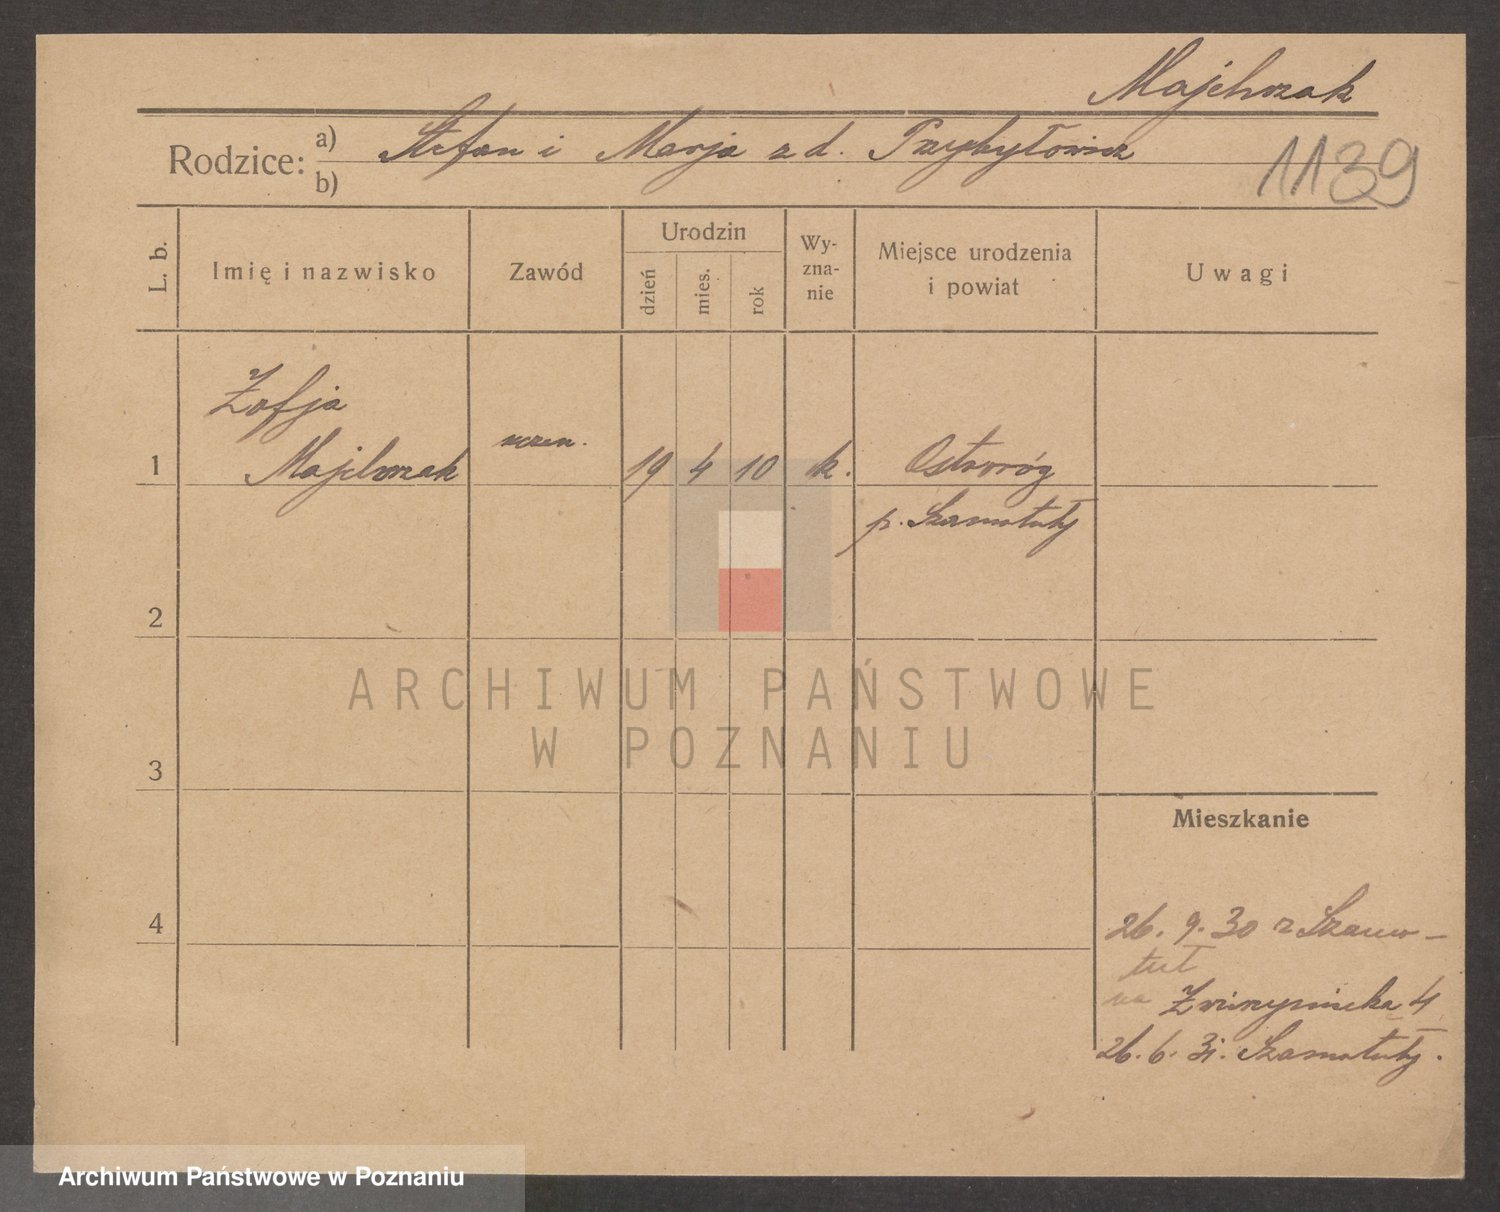 Majchrzak
Rodzice: a) Stefan i Marja z d. Przybyłowicz
b)
1139
L. b.
Imię i nazwisko
Zawód
Urodzin
dzień
mies.
rok
Wy-
zna-
nie
Miejsce urodzenia
i powiat
Uwagi
Zofja
1 Majchrzak uczen. 19 4 10 k. Ostroróg
p. Szamotuły
2
ARCHIWUM PAŃSTWOWE
W POZNANIU
3
Mieszkanie
4
26. 9. 30 z Szamo-
tuł
na Zwierzyniecka 4
26. 6. 31. Szamotuły.
Archiwum Państwowe w Poznaniu